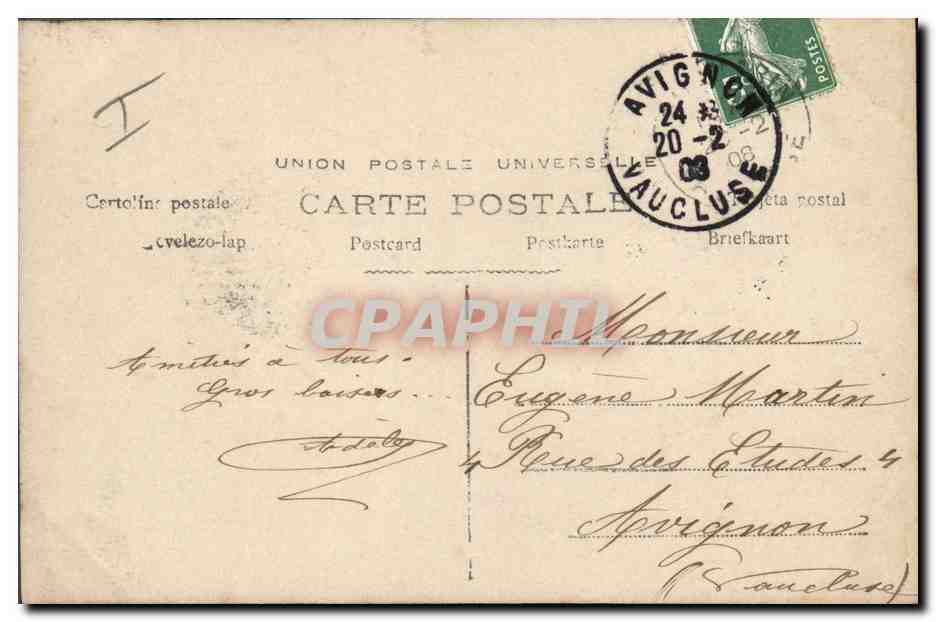 I
POSTES
AVIGNON
24
20 -2
08
VAUCLUSE
-2
08
UNION POSTALE UNIVERSELLE
CARTE POSTALE
Cartolina postale
Tarjeta postal
Levelezo-lap Postcard Postkarte Briefkaart
CPAPHIL
Amitiés à tous.
Gros baisers...
Adèle
Monsieur
Eugène Martin
4 Rue des Etudes 4
Avignon
(Vaucluse)